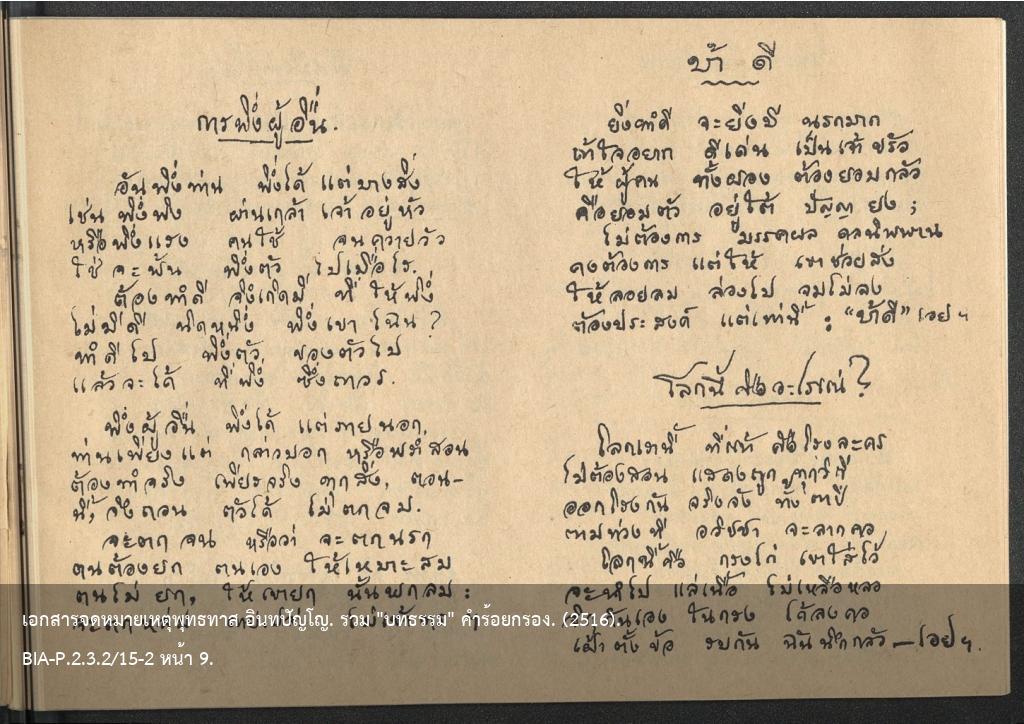 การพึ่งผู้อื่น.
อันพึ่งท่าน พึ่งได้ แต่บางสิ่ง
เช่น พึ่งพิง ผ่านเกล้า เจ้าอยู่หัว
หรือพึ่งแรง คนใช้ จนควายวัว
ใช่จะพ้น พึ่งตัว ไปเมื่อไร.
ต้องทำดี จึงเกิดมี ที่ให้พึ่ง
ไม่มีดี นิดหนึ่ง พึ่งเขาไฉน?
ทำดีไป พึ่งตัว ของตัวไป
แล้วจะได้ ที่พึ่ง ซึ่งถาวร.
พึ่งผู้อื่น พึ่งได้ แต่ภายนอก,
ท่านเพียงแต่ กล่าวบอก หรือพร่ำสอน
ต้องทำจริง เพียรจริง ทุกสิ่ง, ตอน-
นี้, จึงถอน ตัวได้ ไม่ตกจม.
จะตกจน หรือว่า จะตกนรก
ตนต้องยก ตนเอง ให้เหมาะสม
ตนไม่ยก, ให้เขายก นั้นพกลม:
บ้า ดี
ยิ่งทำดี จะยิ่งมี นรกมาก
ถ้าใจอยาก ดีเด่น เป็นเจ้าขรัว
ให้ผู้คน ทั้งผอง ต้องยอมกลัว
คือยอมตัว อยู่ใต้ ปัญญายง;
ไม่ต้องการ มรรคผล ดลนิพพาน
คงต้องการ แต่ให้ เขาช่วยส่ง
ให้ลอยลม ล่องไป จมไม่ลง
ต้องประสงค์ แต่เท่านี้: "บ้าดี" เอย ฯ
โลกนี้ คืออะไรแน่?
โลกเรานี้ ที่แท้ คือโรงละคร
ไม่ต้องสอน แสดงถูก ทุกวิถี
ออกโรงกัน จริงจัง ทั้งตาปี
ตามท่วงที อวิชชา จะลากคอ,
โลกนี้คือ กรงไก่ เขาใส่ไว้
จะนำไป แล่เนื้อ ไม่เหลือหลอ
จิกกันเอง ในกรง ได้ลงคอ
เฝ้าตั้งข้อ รบกัน ฉันนึกกลัว — เอย ฯ.
เอกสารจดหมายเหตุพุทธทาส อินทปัญโญ. รวม "บทธรรม" คำร้อยกรอง. (2516).
BIA-P.2.3.2/15-2 หน้า 9.